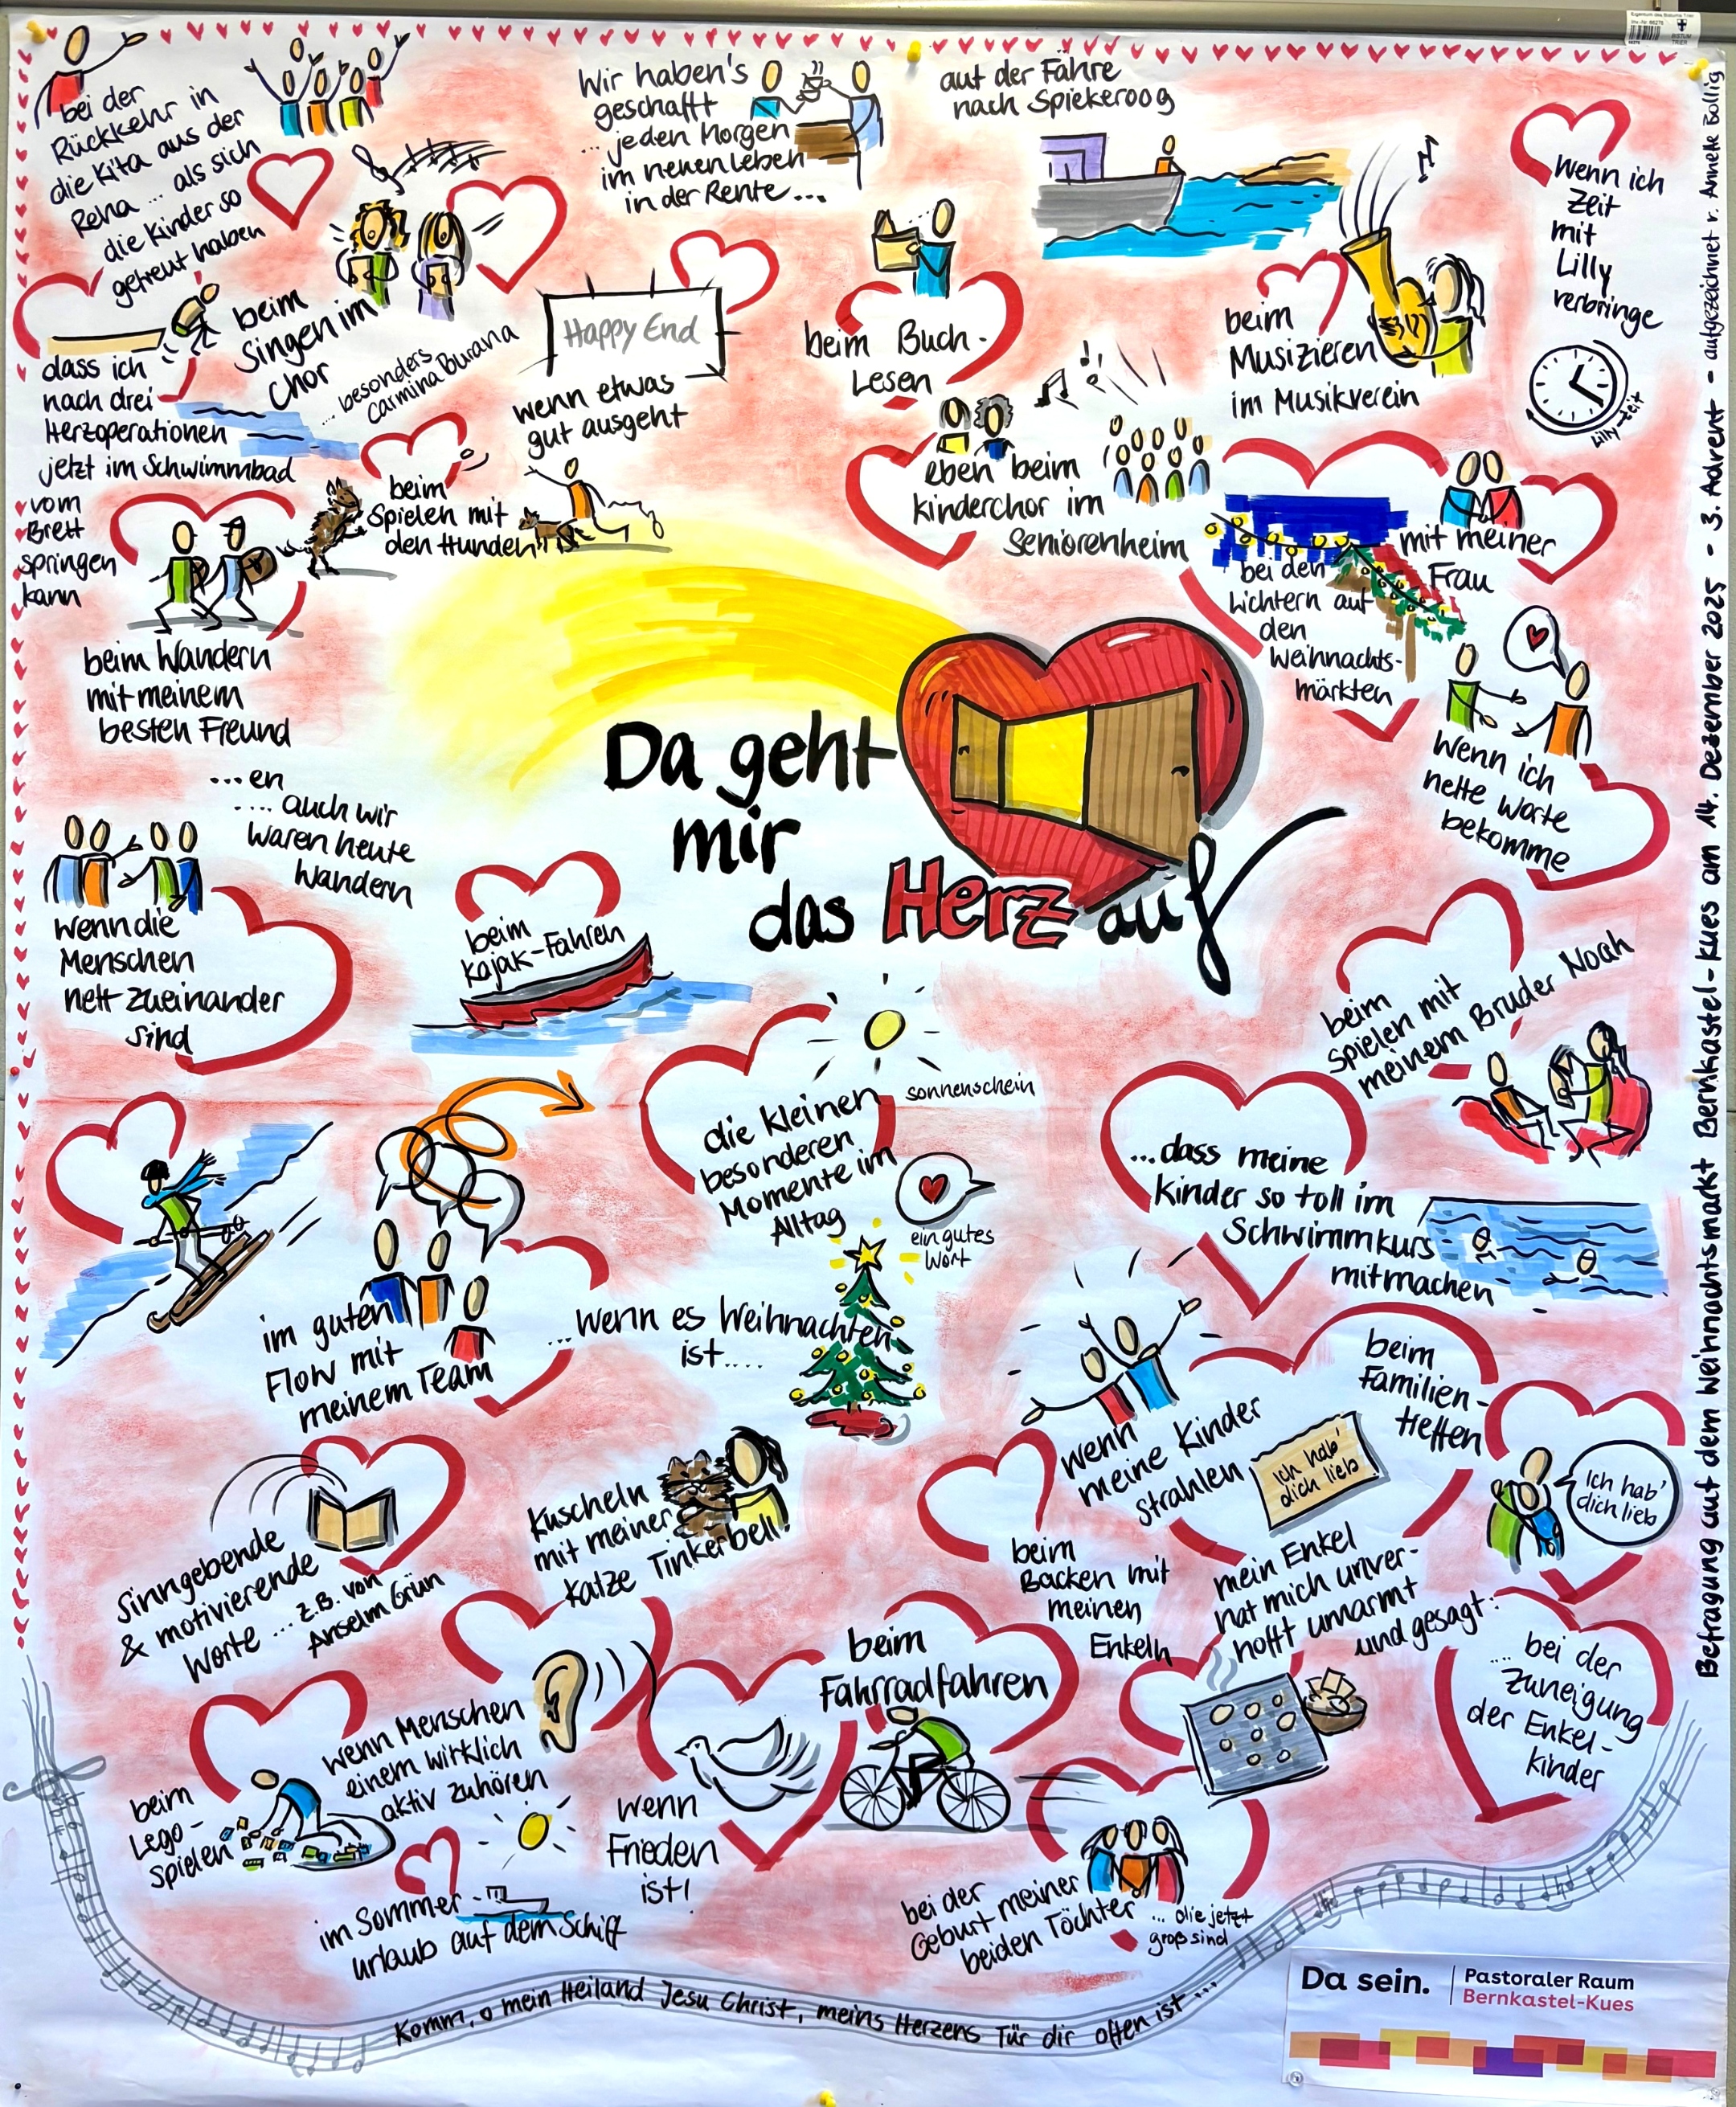 bei der
Rückkehr in
die Kita aus der
Reha ... als sich
die Kinder so
gefreut haben
Wir haben's
geschafft
... jeden Morgen
im neuen Leben
in der Rente ...
auf der Fähre
nach Spiekeroog
Wenn ich
Zeit
mit
Lilly
verbringe
Lilly-Zeit
beim
Singen im
Chor
... besonders
Carmina Burana
Happy End
wenn etwas
gut ausgeht
beim Buch-
Lesen
beim
Musizieren
im Musikverein
dass ich
nach drei
Herzoperationen
jetzt im Schwimmbad
vom
Brett
springen
kann
beim
Spielen mit
den Hunden
eben beim
Kinderchor im
Seniorenheim
mit meiner
Frau
bei den
Lichtern auf
den
Weihnachts-
märkten
beim Wandern
mit meinem
besten Freund
...en
.... auch wir
waren heute
wandern
Wenn ich
nette Worte
bekomme
Da geht
mir
das Herz auf
wenn die
Menschen
nett zueinander
sind
beim
Kajak-Fahren
beim
Spielen mit
meinem Bruder Noah
die kleinen
besonderen
Momente im
Alltag
Sonnenschein
ein gutes
Wort
...dass meine
Kinder so toll im
Schwimmkurs
mitmachen
im guten
Flow mit
meinem Team
...wenn es Weihnachten
ist....
wenn
meine Kinder
strahlen
beim
Familien-
treffen
Ich hab'
dich lieb
Ich hab'
dich lieb
Sinngebende
& motivierende
Worte ... z.B. von
Anselm Grün
Kuscheln
mit meiner
Katze Tinkerbell!
beim
Backen mit
meinen
Enkeln
mein Enkel
hat mich unver-
hofft umarmt
und gesagt:
.... bei der
Zuneigung
der Enkel-
kinder
beim
Lego-
Spielen
wenn Menschen
einem wirklich
aktiv zuhören
beim
Fahrradfahren
wenn
Frieden
ist!
im Sommer-
urlaub auf dem Schiff
bei der
Geburt meiner
beiden Töchter
... die jetzt
groß sind
Komm, o mein Heiland Jesu Christ, meins Herzens Tür dir offen ist ...
Da sein.
Pastoraler Raum
Bernkastel-Kues
Befragung auf dem Weihnachtsmarkt Bernkastel-Kues am 14. Dezember 2025 - 3. Advent - aufgezeichnet v. Annette Bollig